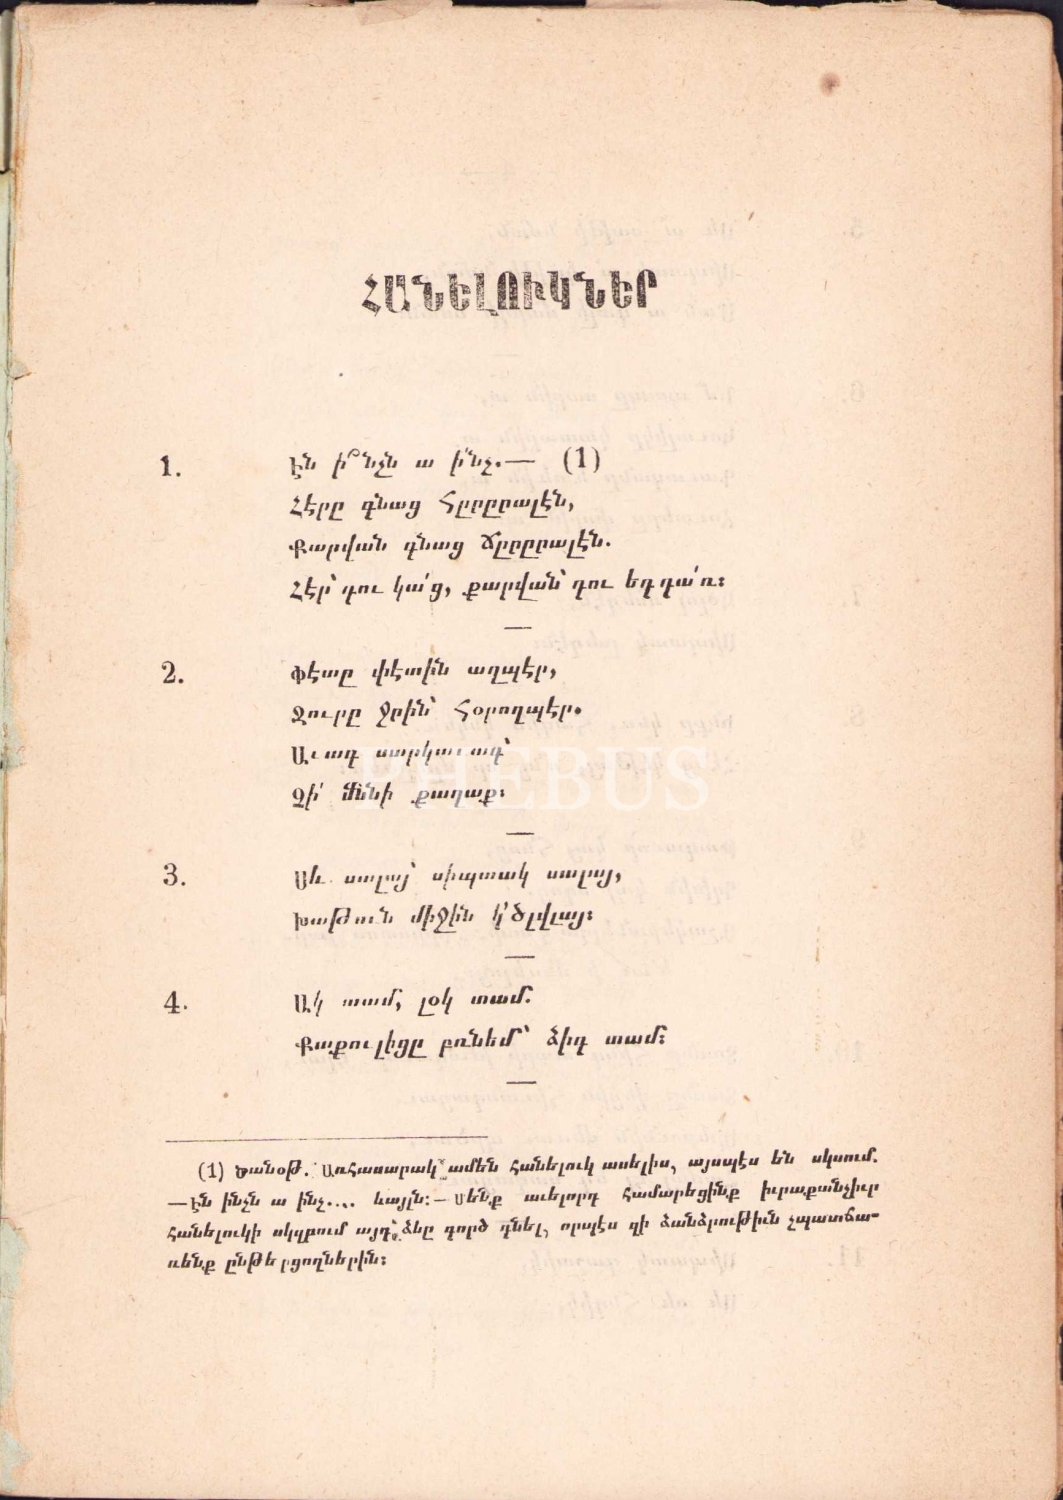 ՀԱՆԵԼՈՒԿՆԵՐ
1. Էն ի՞նչն ա ի՛նչ.— (1)
Հէրը գնաց Հըըըըալէն,
Քարվան գնաց Ճըըըըալէն.
Հէր՝ դու կա՛ց, քարվան՝ դու եդ դա՛ռ։
2. Փէտը փէտին աղպէր,
Ջուրը ջրին՝ Հօրողպէր.
Աւադ սարկաւադ՝
Չի՛ մննի քաղաք։
3. Սև սալայ՝ սիպտակ սալայ,
Խաթուն միջին կ՛ծլվլայ։
4. Ակ տամ, լօկ տամ.
Քաքուլիցը բռնեմ՝ ձիդ տամ։
PHEBUS
(1) Ծանօթ. Առհասարակ ամեն հանելուկ ասելիս, այսպէս են սկսում.
—Էն ինչն ա ինչ.... ևայլն։— Մենք աւելորդ համարեցինք իւրաքանչիւր
հանելուկի սկզբում այդ ձևը գործ դնել, որպէս զի ձանձրութիւն չպատճա-
ռենք ընթերցողներին։